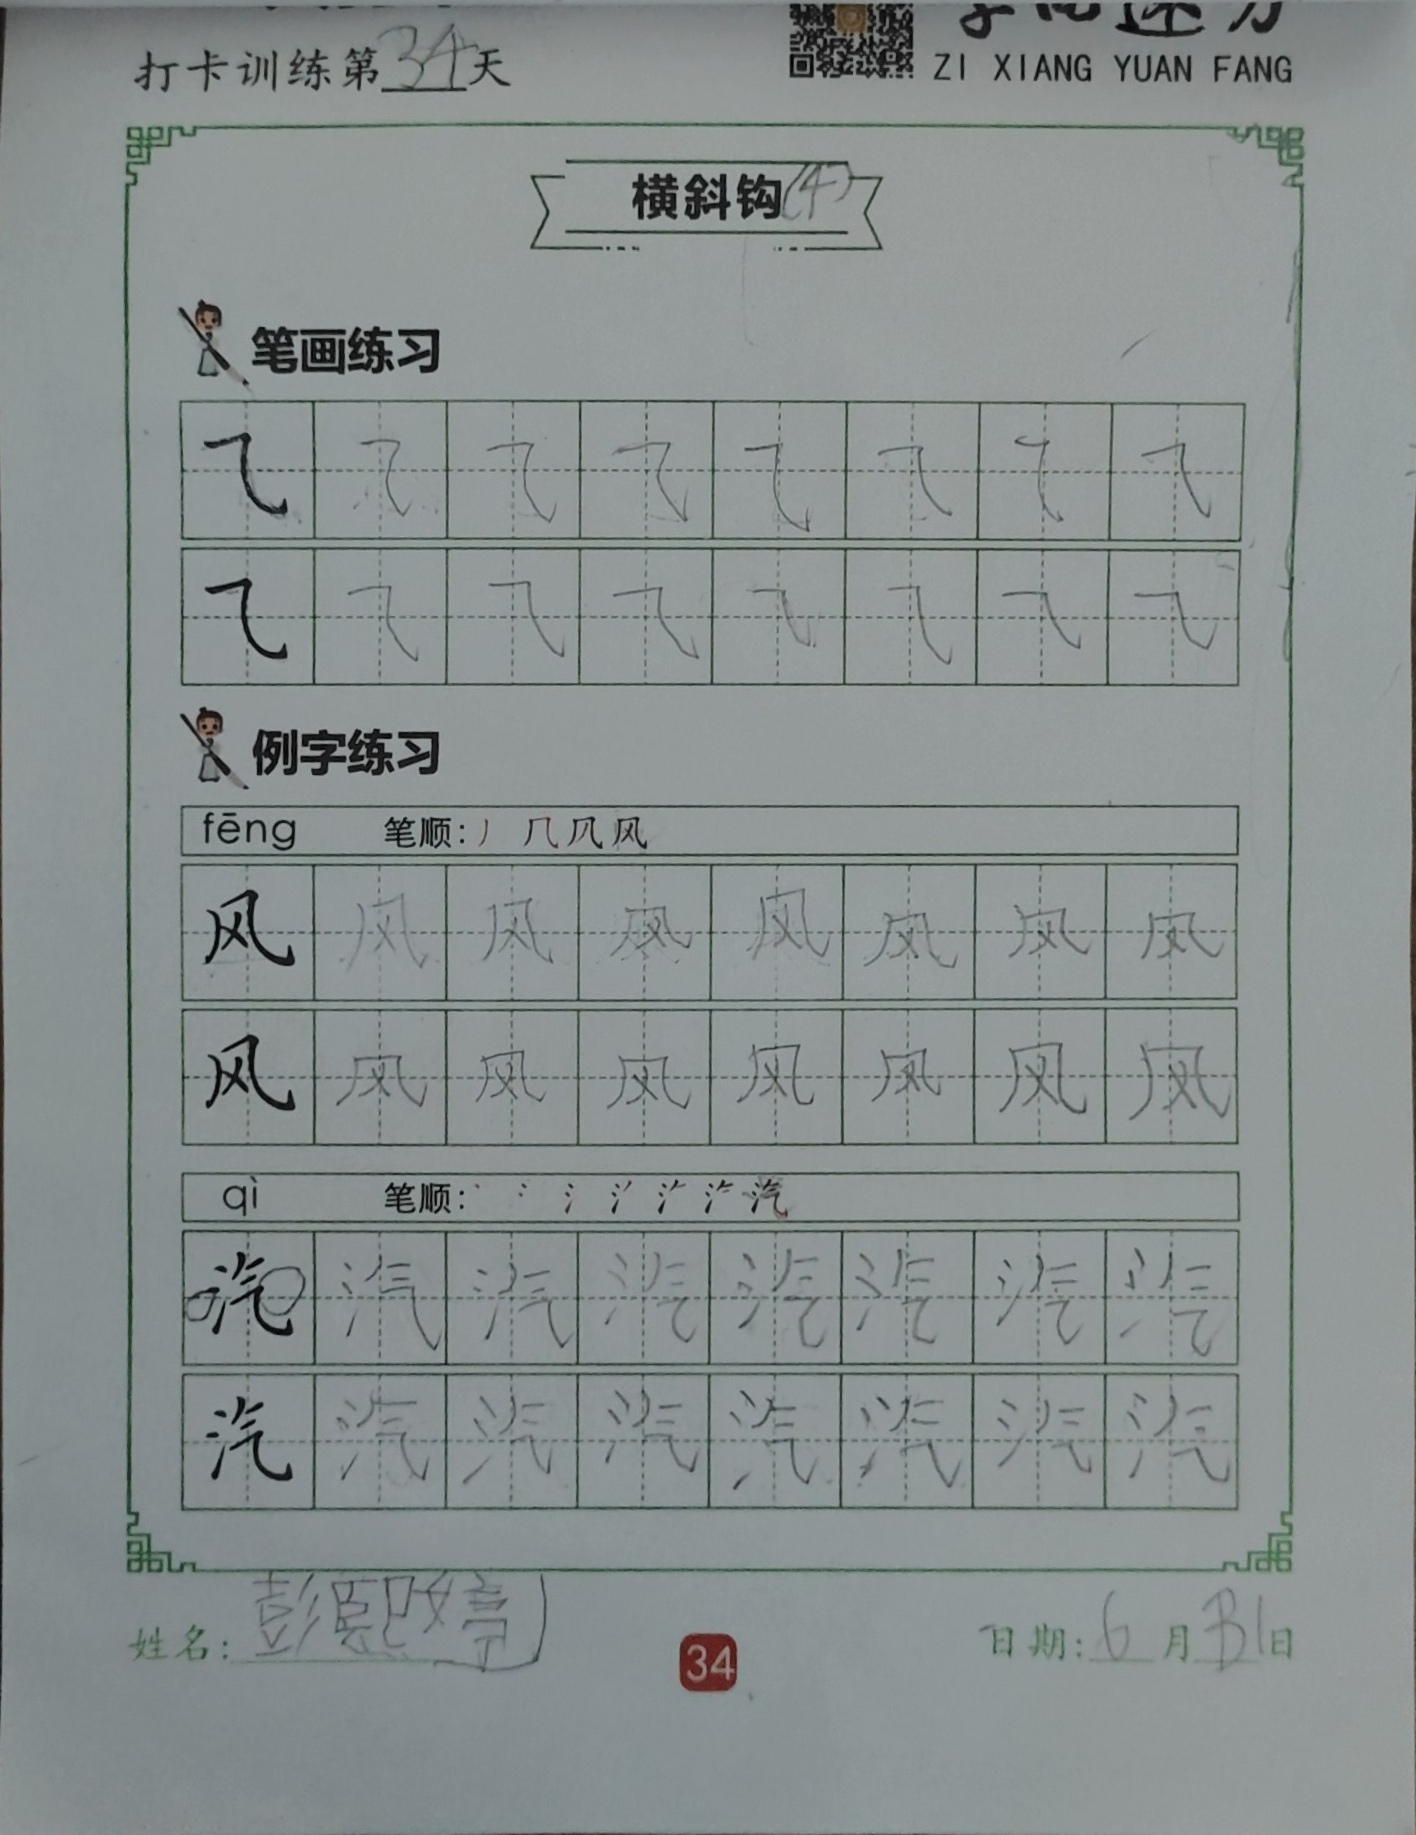 打卡训练第34天
ZI XIANG YUAN FANG
横斜钩(4)
笔画练习
例字练习
fēng 笔顺: 丿 几 凤 风
风 风 风 风 风 风 风 风
风 风 风 风 风 风 风 风
qì 笔顺: 汽
汽 汽 汽 汽 汽 汽 汽 汽
汽 汽 汽 汽 汽 汽 汽 汽
姓名: 彭熙婷
34
日期: 6月 日